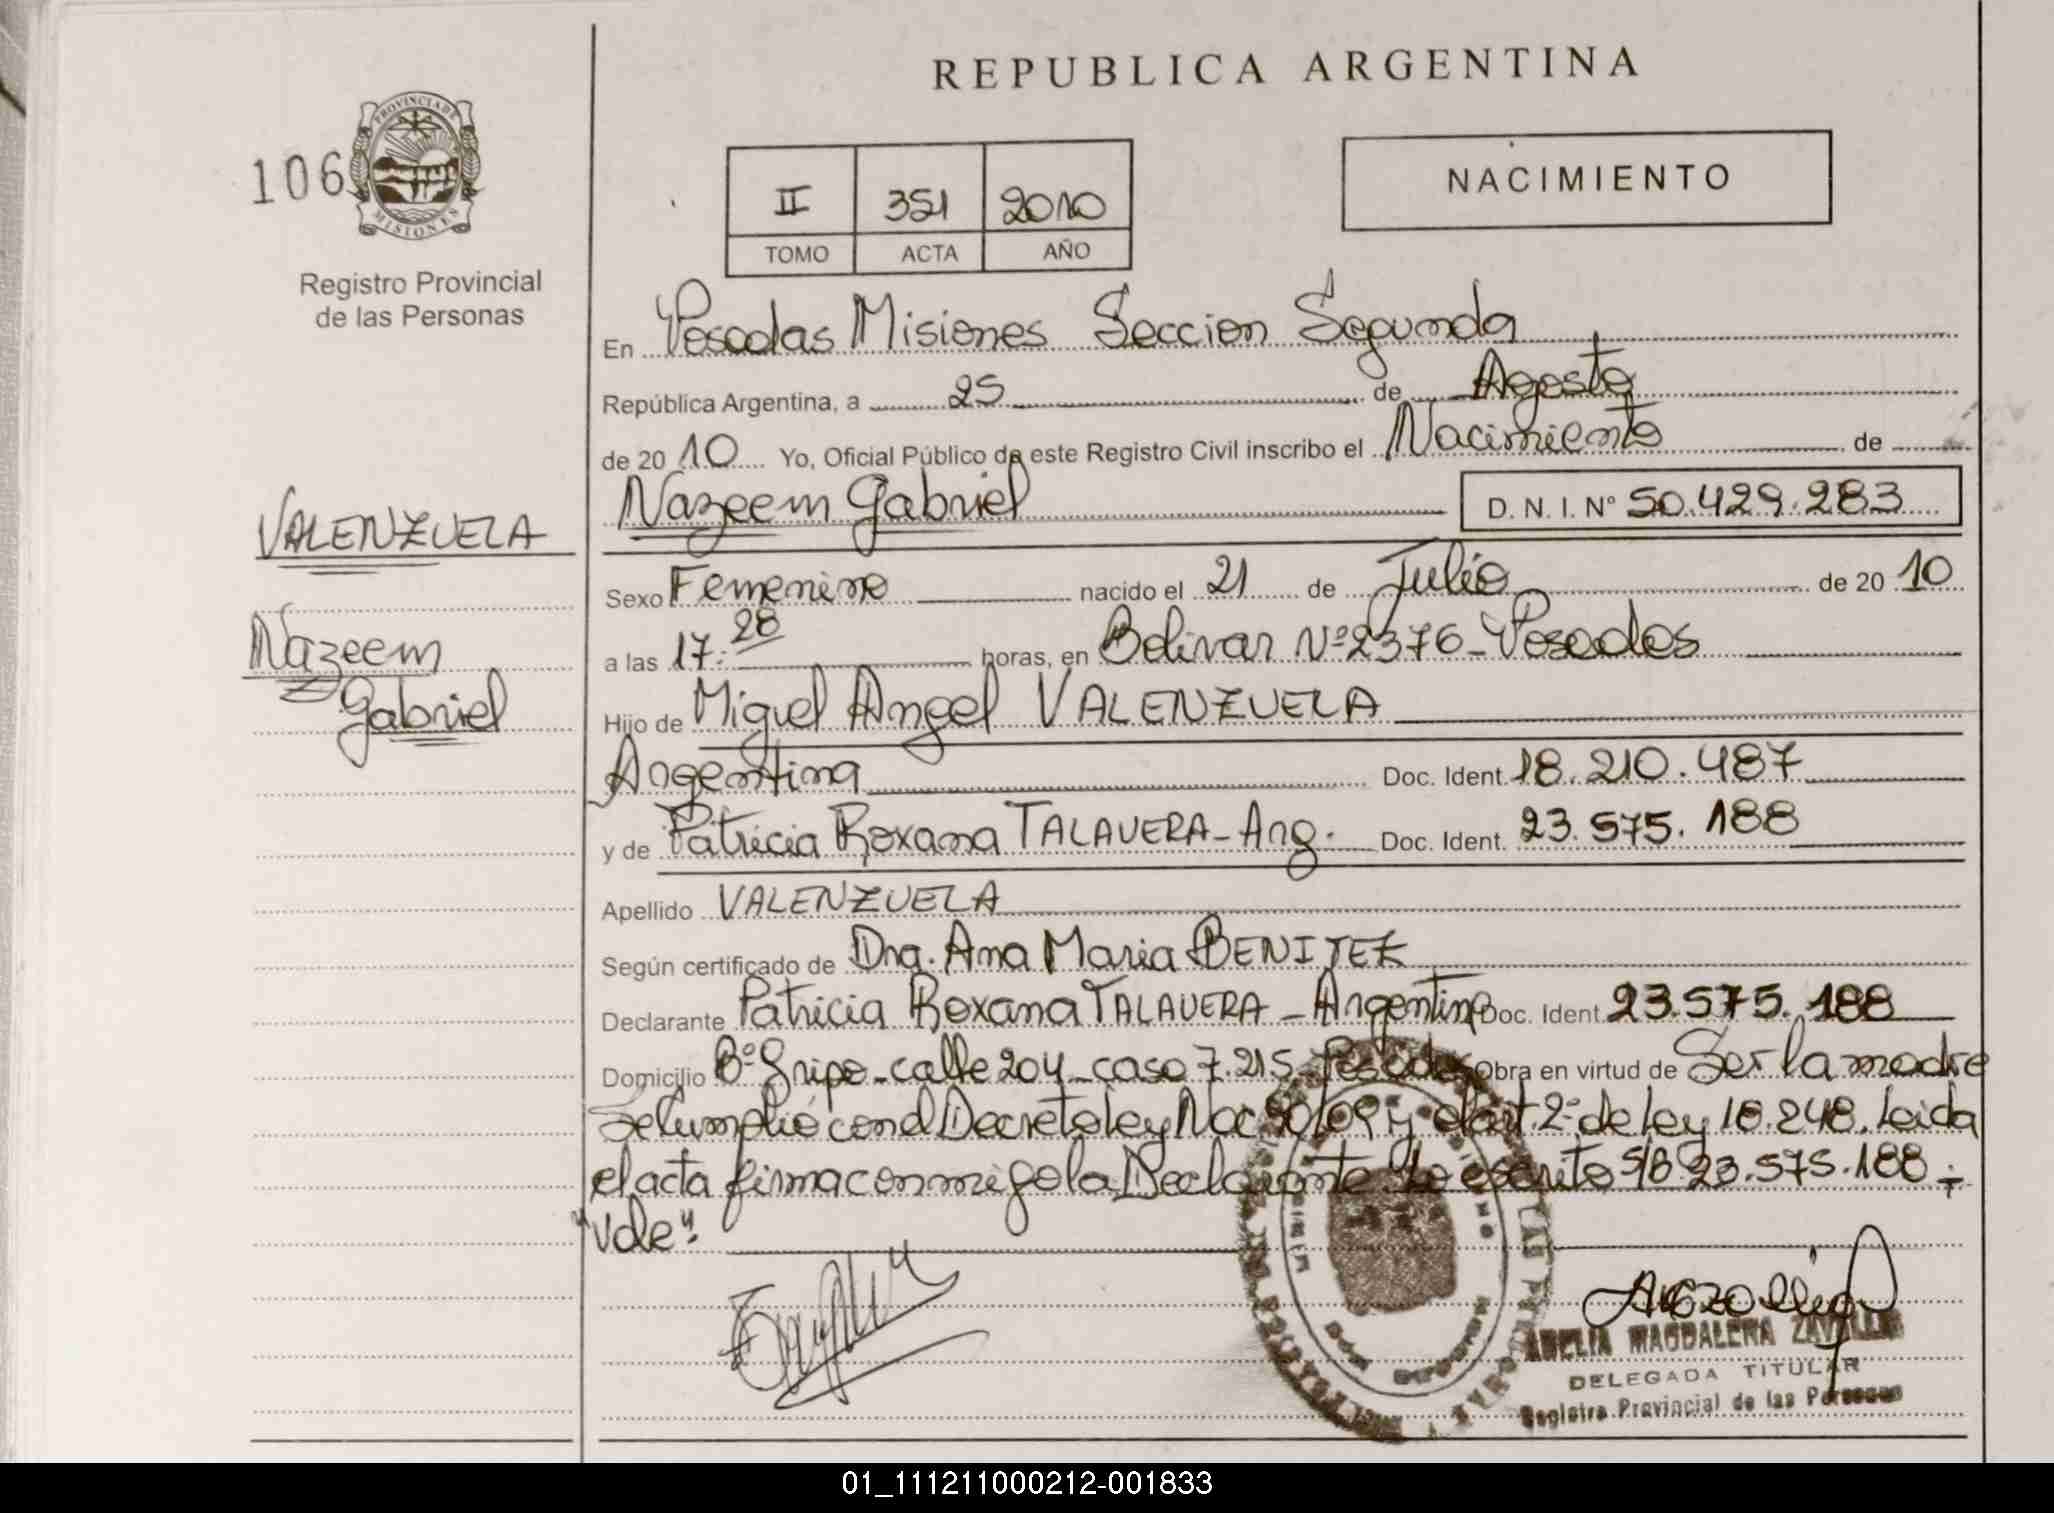 REPUBLICA ARGENTINA
106
PROVINCIA DE
MISIONES
Registro Provincial
de las Personas
II 351 2010
TOMO ACTA AÑO
NACIMIENTO
En Posadas Misiones Seccion Segunda
República Argentina, a 25 de Agosto
de 2010 Yo, Oficial Público de este Registro Civil inscribo el Nacimiento de
Nazeem Gabriel D. N. I. Nº 50.429.283
VALENZUELA
Nazeem
Gabriel
Sexo Femenino nacido el 21 de Julio de 2010
a las 17:28 horas, en Bolivar Nº 2376 - Posadas
Hijo de Miguel Angel VALENZUELA
Argentina Doc. Ident. 18.210.487
y de Patricia Roxana TALAVERA - Arg. Doc. Ident. 23.575.188
Apellido VALENZUELA
Según certificado de Dra. Ana Maria BENITEZ
Declarante Patricia Roxana TALAVERA - Argentina Doc. Ident. 23.575.188
Domicilio Bº calle 204 casa 7.215 Posadas Obra en virtud de Ser la madre
Se cumplio con el Decreto ley Nac 90/09 y el art. 2º de ley 18.248. Leida
el acta firma conmigo la Declarante lo escrito S/B 23.575.188 -
"Vale".
MAGDALENA
DELEGADA TITULAR
Registro Provincial de las Personas
01_111211000212-001833